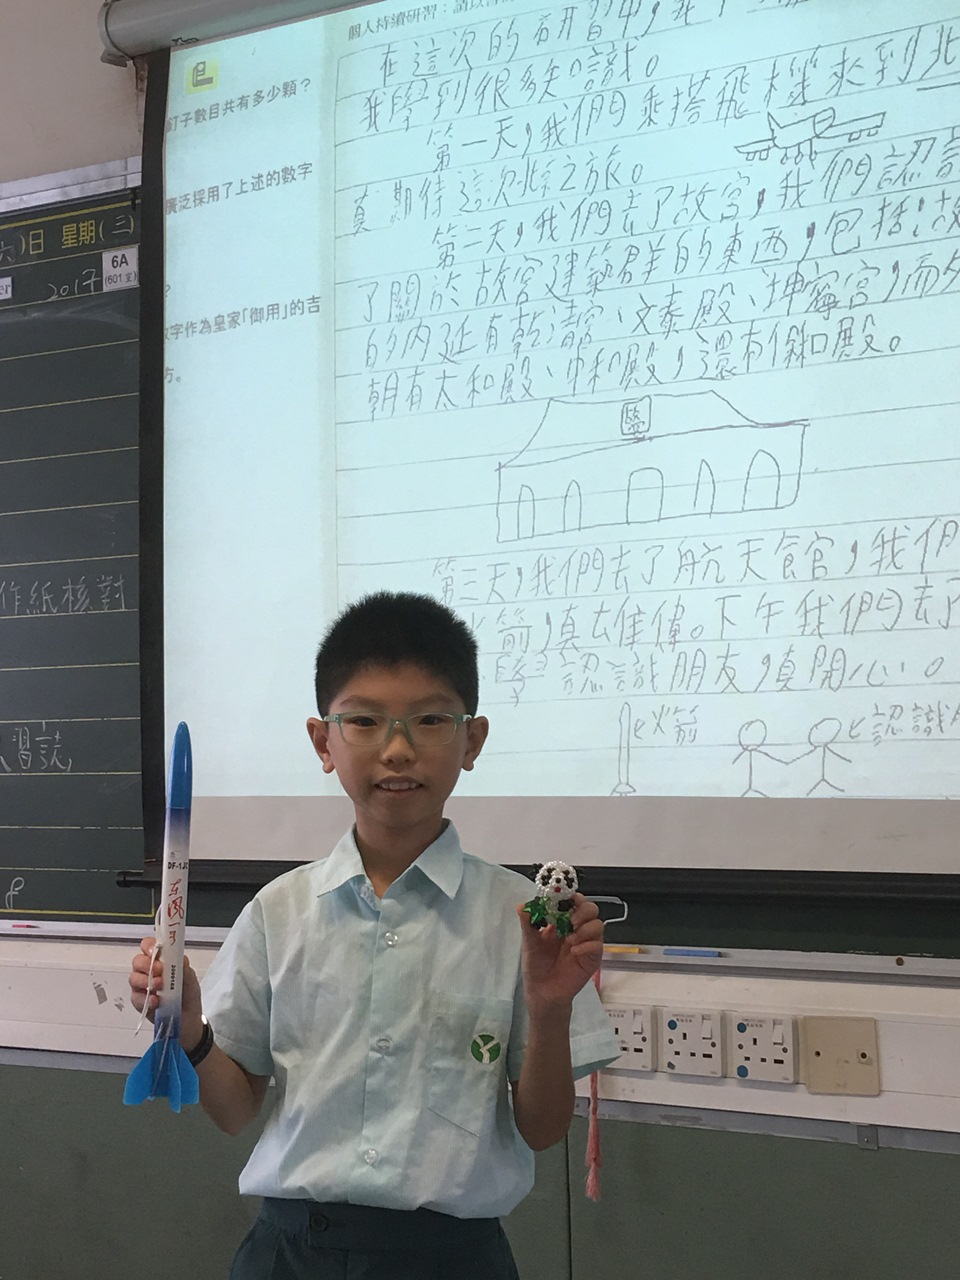 個人持續研習：請以
在這次的研習中，我
我學到很多知識。
第一天，我們乘搭飛機來到北
真期待這次北京之旅。
第二天，我們去了故宮，我們認識
了關於故宮建築群的東西，包括：故
的內廷有乾清宮、文泰殿、坤寧宮，而外
朝有太和殿、中和殿，還有保和殿。
第三天，我們去了航天館，我們
箭，真雄偉。下午我們去了
認識朋友，真開心。
火箭
認識
釘子數目共有多少顆？
廣泛採用了上述的數字
?
字作為皇家「御用」的吉
方。
六)日 星期(三)
6A
(601室)
er
2017
作紙核對
習
DF-1
东风一号